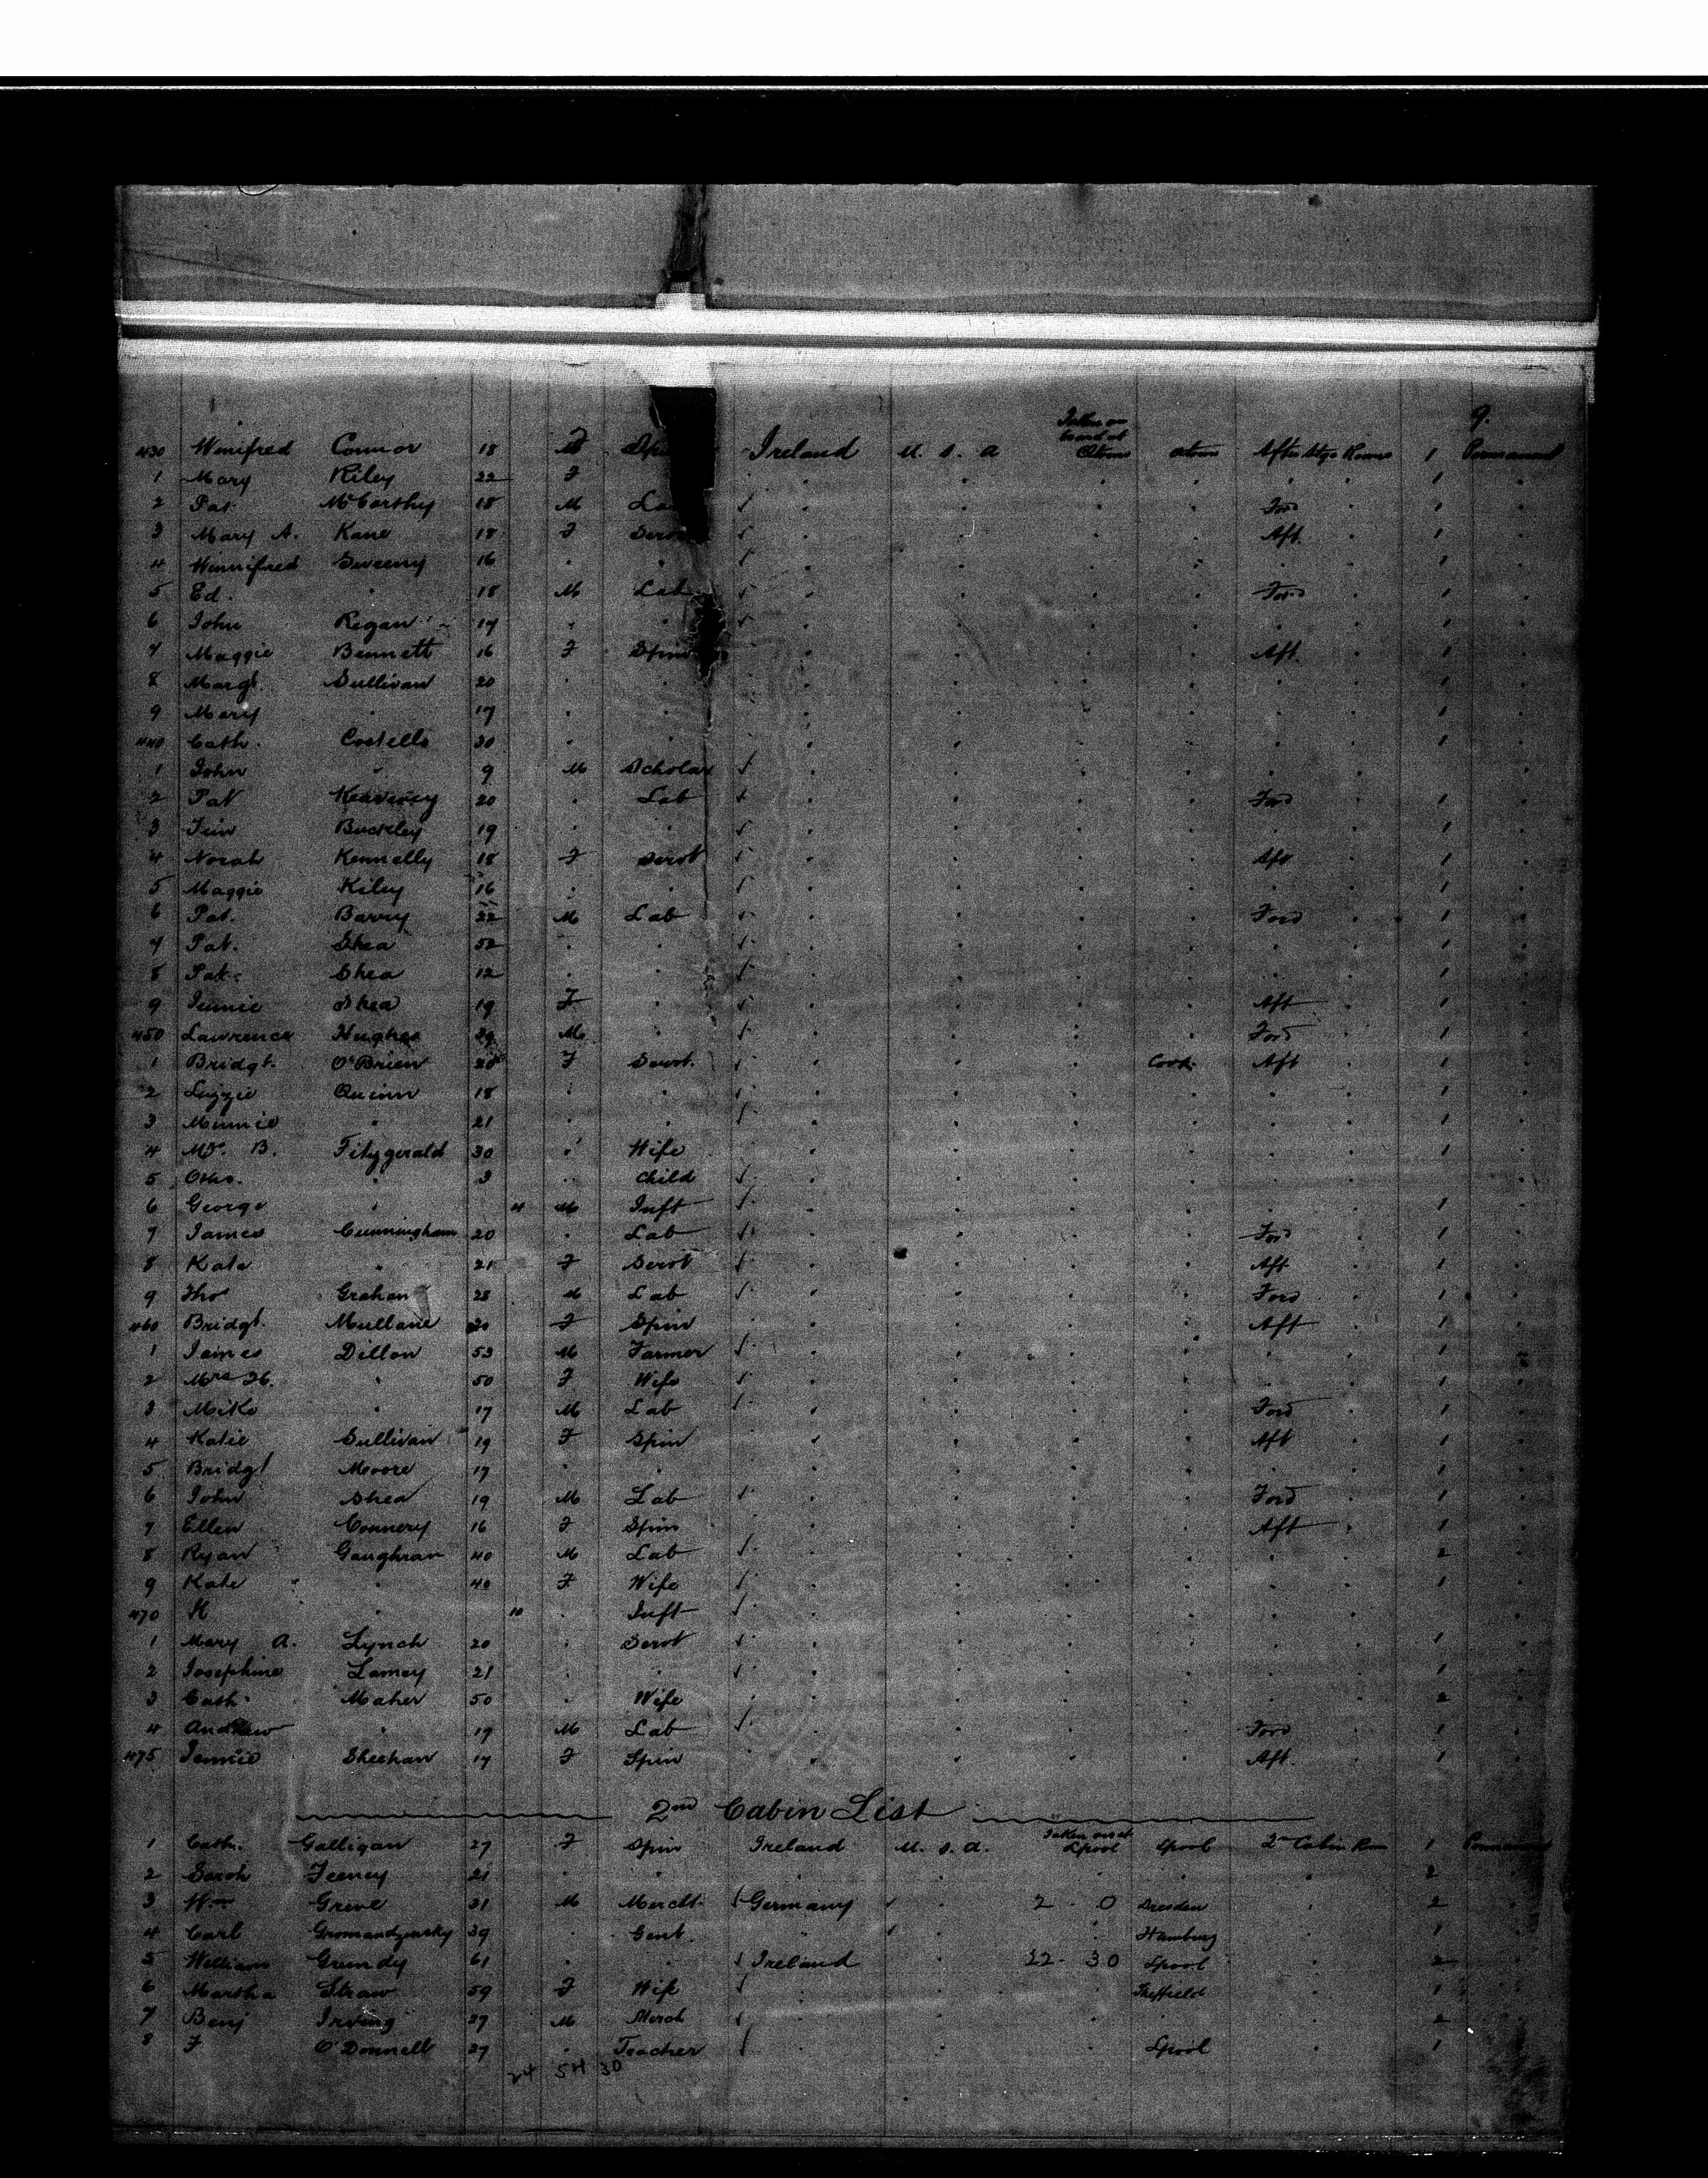 9.
Taken on
board at
430 Winifred Connor 18 F Ireland U.S.A Qtown Qtown After Stge Rooms 1 Permanent
1 Mary Riley 22 F . . . . . . 1 .
2 Pat McCarthy 18 M . . . . Ford . 1 .
3 Mary A. Kane 18 F . . . . Aft. . 1 .
4 Winnifred Sweeny 16 . . . . . . . . 1 .
5 Ed. " 18 M Lab . . . . Ford . 1 .
6 John Regan 17 . . . . . . . . 1 .
7 Maggie Bennett 16 F Spin . . . . Aft. . 1 .
8 Margt. Sullivan 20 . . . . . . . . 1 .
9 Mary " 17 . . . . . . . . 1 .
440 Cath. Costello 30 . . . . . . . . 1 .
1 John " 9 M Scholar ✓ . . . . . .
2 Pat Keaveney 20 . Lab ✓ . . . . Ford . 1 .
3 Buckley 19 . . ✓ . . . . . . 1 .
4 Norah Kennelly 18 F Servt ✓ . . . . Aft . 1 .
5 Maggie Kiley 16 . . ✓ . . . . . . 1 .
6 Pat. Barry 22 M Lab ✓ . . . . Ford . 1 .
7 Pat. Shea 52 . . ✓ . . . . . . 1 .
8 Pat. Shea 12 . . ✓ . . . . . . 1 .
9 Shea 19 F . ✓ . . . . Aft . 1 .
450 Lawrence Hughes M . ✓ . . . . Ford . 1 .
1 Bridgt. O'Brien 20 F Servt. ✓ . . . Cork Aft . 1 .
2 Lizzie Quinn 18 . . ✓ . . . . . . 1 .
3 Minnie " 21 . . ✓ . . . . . . 1 .
4 B. Fitzgerald 30 . Wife . . . . . . 1 .
5 " 3 . Child ✓ . . . . . .
6 George " 4 M Inft ✓ . . . . . . 1 .
7 James Cunningham 20 . Lab ✓ . . . . Ford . 1 .
8 Kate " 21 F Servt ✓ . . . . Aft . 1 .
9 Thos Graham 28 M Lab ✓ . . . . Ford . 1 .
460 Bridgt. Mullane F Spin . . . . Aft . 1 .
1 James Dillon 53 M Farmer ✓ . . . . . . 1 .
2 Mrs " 50 F Wife ✓ . . . . . . 1 .
3 Mike " 17 M Lab ✓ . . . . Ford . 1 .
4 Katie Sullivan 19 F Spin . . . . Aft . 1 .
5 Bridgt Moore 17 . . . . . . . . 1 .
6 John Shea 19 M Lab ✓ . . . . Ford . 1 .
7 Ellen Connery 16 F Spin . . . . Aft . 1 .
8 Ryan Gaughran 40 M Lab ✓ . . . . . . 2 .
9 Kate " 40 F Wife ✓ . . . . . . 1 .
470 " 10 . Inft ✓ . . . . . .
1 Mary A. Lynch 20 . Servt ✓ . . . . . . 1 .
2 Josephine Lamey 21 . . ✓ . . . . . . 1 .
3 Cath. Maher 50 . Wife . . . . . . 2 .
4 Andrew " 19 M Lab ✓ . . . . Ford . 1 .
475 Jennie Sheehan 17 F Spin . . . . Aft. . 1 .
2nd Cabin List
1 Cath. Galligan 27 F Spin Ireland U.S.A. Taken on at Lpool Lpool 2nd Cabin Room 1 Permanent
2 Sarah Feeney 21 . . . . . . . 2 .
3 Wm Greve 31 M Mercht. ✓ Germany . 2 . 0 Dresden . 2 .
4 Carl 39 . Gent. " . " Hamburg . 1 .
5 William Grundy 61 . . ✓ Ireland . 30 Lpool . 2 .
6 Martha Straw 59 F Wife ✓ . . . Sheffield . 1 .
7 Benj Irving 27 M Merch ✓ . . . . . 2 .
8 F O'Donnell 27 . Teacher ✓ . . . Lpool . 1 .
24 54 30